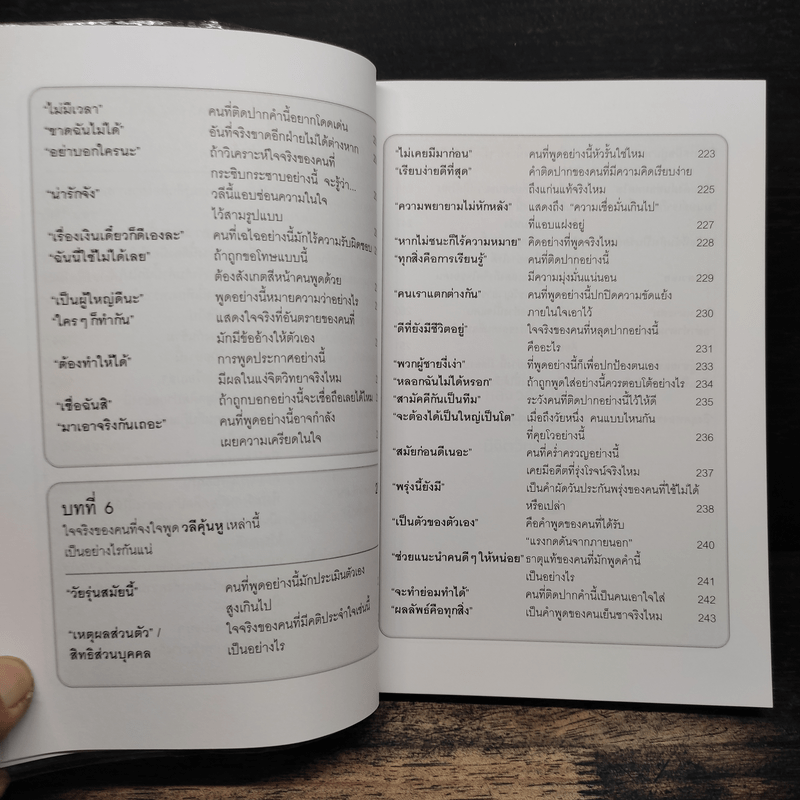 "ไม่มีเวลา" คนที่ติดปากคำนี้อยากโดดเด่น
"ขาดฉันไม่ได้" อันที่จริงขาดอีกฝ่ายไม่ได้ต่างหาก
"อย่าบอกใครนะ" ถ้าวิเคราะห์ใจจริงของคนที่
กระซิบกระซาบอย่างนี้ จะรู้ว่า...
"น่ารักจัง" วลีนี้แอบซ่อนความในใจ
ไว้สามรูปแบบ
"เรื่องเงินเดี๋ยวก็ดีเองละ" คนที่เฉไฉอย่างนี้มักไร้ความรับผิดชอบ
"ฉันนี่ใช้ไม่ได้เลย" ถ้าถูกขอโทษแบบนี้
ต้องสังเกตสีหน้าคนพูดด้วย
"เป็นผู้ใหญ่ดีนะ" พูดอย่างนี้หมายความว่าอย่างไร
"ใครๆ ก็ทำกัน" แสดงใจจริงที่อันตรายของคนที่
มักมีข้ออ้างให้ตัวเอง
"ต้องทำให้ได้" การพูดประกาศอย่างนี้
มีผลในแง่จิตวิทยาจริงไหม
"เชื่อฉันสิ" ถ้าถูกบอกอย่างนี้จะเชื่อถือเลยได้ไหม
"มาเอาจริงกันเถอะ" คนที่พูดอย่างนี้อาจกำลัง
เผยความเครียดในใจ
บทที่ 6
ใจจริงของคนที่จงใจพูด วลีคุ้นหู เหล่านี้
เป็นอย่างไรกันแน่
"วัยรุ่นสมัยนี้" คนที่พูดอย่างนี้มักประเมินตัวเอง
สูงเกินไป
"เหตุผลส่วนตัว" / ใจจริงของคนที่มีคติประจำใจเช่นนี้
สิทธิส่วนบุคคล เป็นอย่างไร
"ไม่เคยมีมาก่อน" คนที่พูดอย่างนี้หัวรั้นใช่ไหม 223
"เรียบง่ายดีที่สุด" คำติดปากของคนที่มีความคิดเรียบง่าย
ถึงแก่นแท้จริงไหม 225
"ความพยายามไม่หักหลัง" แสดงถึง "ความเชื่อมั่นเกินไป"
ที่แอบแฝงอยู่ 227
"หากไม่ชนะก็ไร้ความหมาย" คิดอย่างที่พูดจริงไหม 228
"ทุกสิ่งคือการเรียนรู้" คนที่ติดปากอย่างนี้
มีความมุ่งมั่นแน่นอน 229
"คนเราแตกต่างกัน" คนที่พูดอย่างนี้ปกปิดความขัดแย้ง
ภายในใจเอาไว้ 230
"ดีที่ยังมีชีวิตอยู่" ใจจริงของคนที่หลุดปากอย่างนี้
คืออะไร 231
"พวกผู้ชายงี่เง่า" ที่พูดอย่างนี้ก็เพื่อปกป้องตนเอง 233
"หลอกฉันไม่ได้หรอก" ถ้าถูกพูดใส่อย่างนี้ควรตอบโต้อย่างไร 234
"สามัคคีกันเป็นทีม" ระวังคนที่ติดปากอย่างนี้ไว้ให้ดี 235
"จะต้องได้เป็นใหญ่เป็นโต" เมื่อถึงวัยหนึ่ง คนแบบไหนกัน
ที่คุยโวอย่างนี้ 236
"สมัยก่อนดีเนอะ" คนที่คร่ำครวญอย่างนี้
เคยมีอดีตที่รุ่งโรจน์จริงไหม 237
"พรุ่งนี้ยังมี" เป็นคำผัดวันประกันพรุ่งของคนที่ใช้ไม่ได้
หรือเปล่า 238
"เป็นตัวของตัวเอง" คือคำพูดของคนที่ได้รับ
"แรงกดดันจากภายนอก" 240
"ช่วยแนะนำคนดีๆ ให้หน่อย" ธาตุแท้ของคนที่มักพูดคำนี้
เป็นอย่างไร 241
"จะทำย่อมทำได้" คนที่ติดปากคำนี้เป็นคนเอาใจใส่ 242
"ผลลัพธ์คือทุกสิ่ง" เป็นคำพูดของคนเย็นชาจริงไหม 243